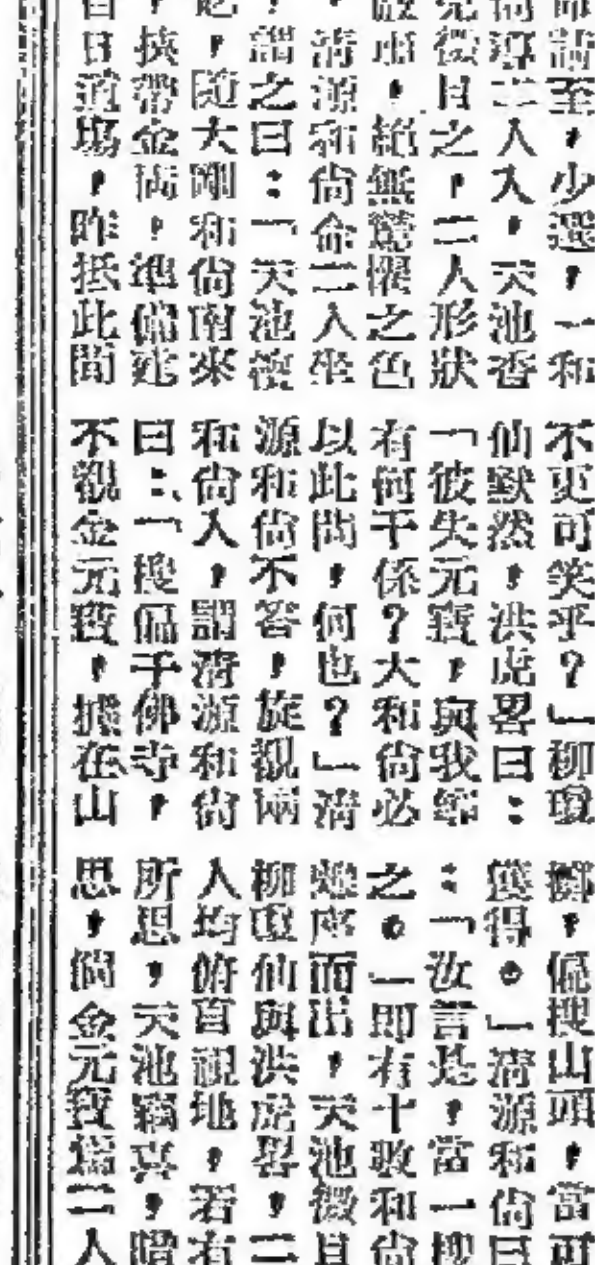 請至,少選,一和
尚導二人入,天池香
微目之,二人形狀
,絕無驚懼之色
,清源和尚命二人坐
,謂之曰:「天池
,隨大剛和尚南來
,挾帶金両,準備建
百日道塲,昨抵此間
不更可笑乎?」柳瓊
仙默然,洪虎畧曰:
「彼失元寳,與我儕
有何干係?大和尚必
以此問,何也?」清
源和尚不答,旋覩両
和尚入,謂清源和尚
曰:「搜徧千佛寺,
不覩金元寳,據在山
擲,徧搜山頭,當可
獲得。」清源和尚曰
:「汝言是,當一搜
之。」即有十數和尚
離座而出,天池微目
柳瓊仙與洪虎畧,二
人均俯首視地,若有
所思,天池竊喜,暗
思,倘金元寳爲二人